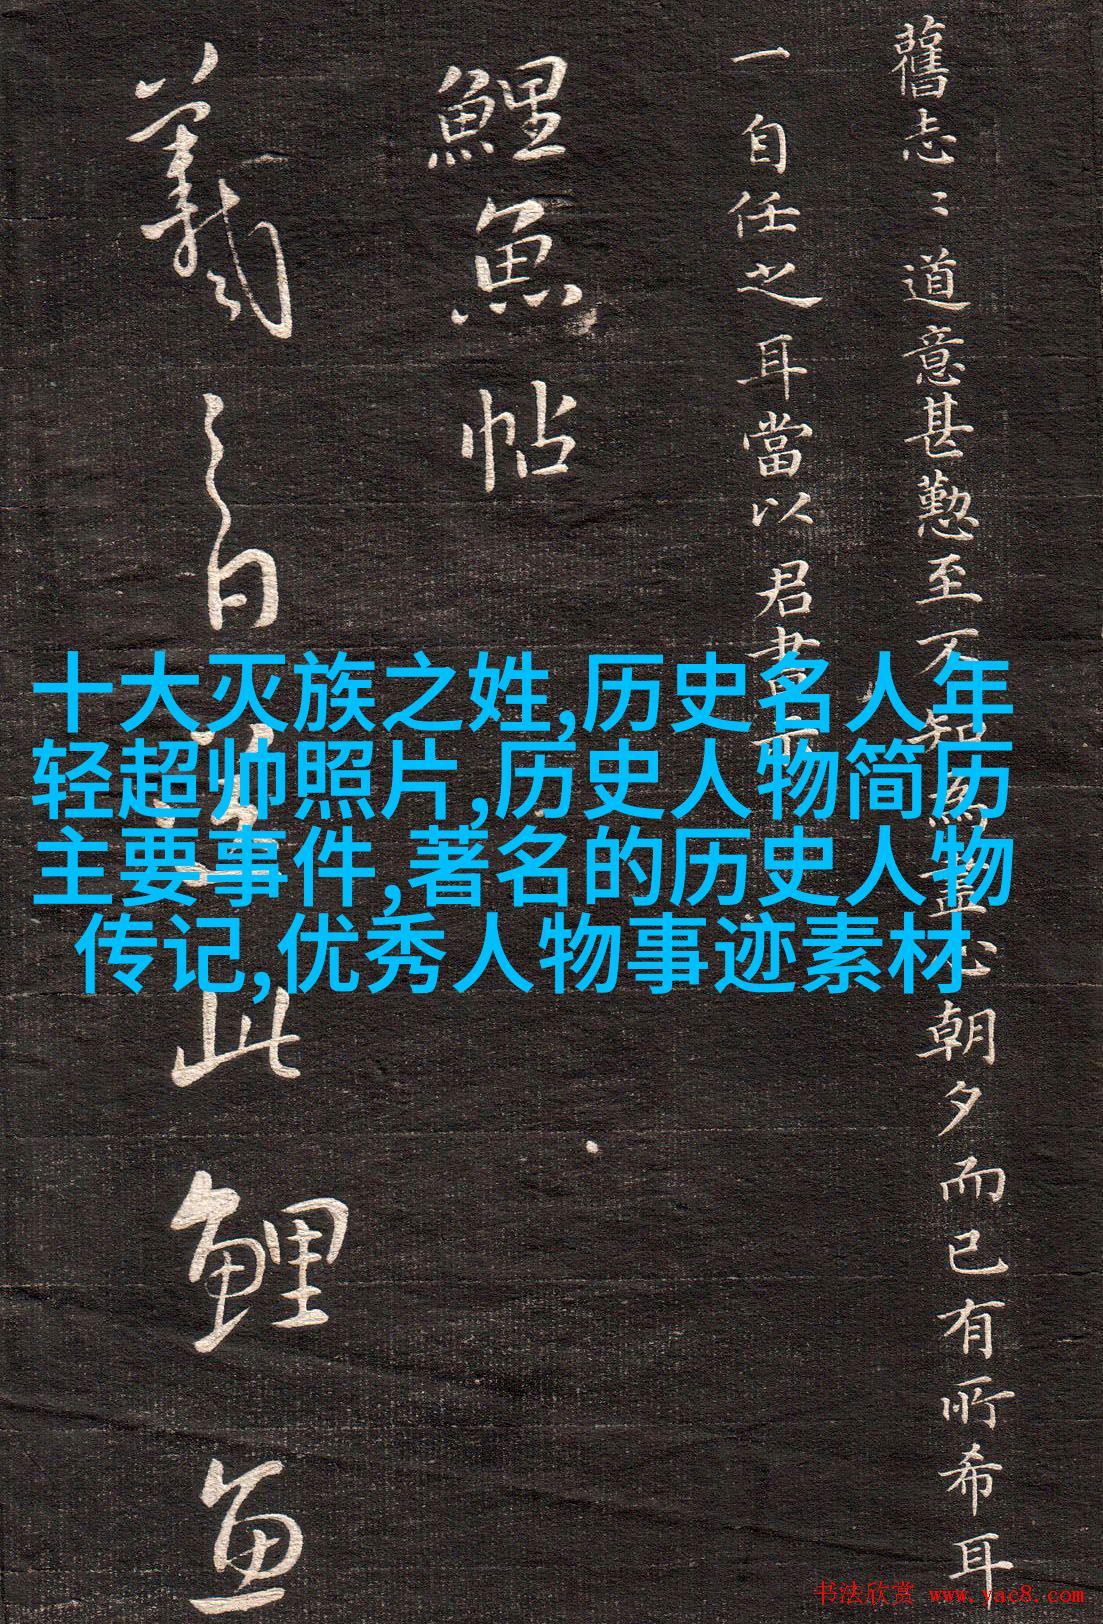 舊志〻道意甚懃至不知
朝夕而已有所希耳
一自任之耳當以君書
鯉魚帖
羲之白
此鯉魚
十大灭族之姓,历史名人年
轻超帅照片,历史人物简历
主要事件,著名的历史人物
传记,优秀人物事迹素材
书法欣赏 www.yac8.com